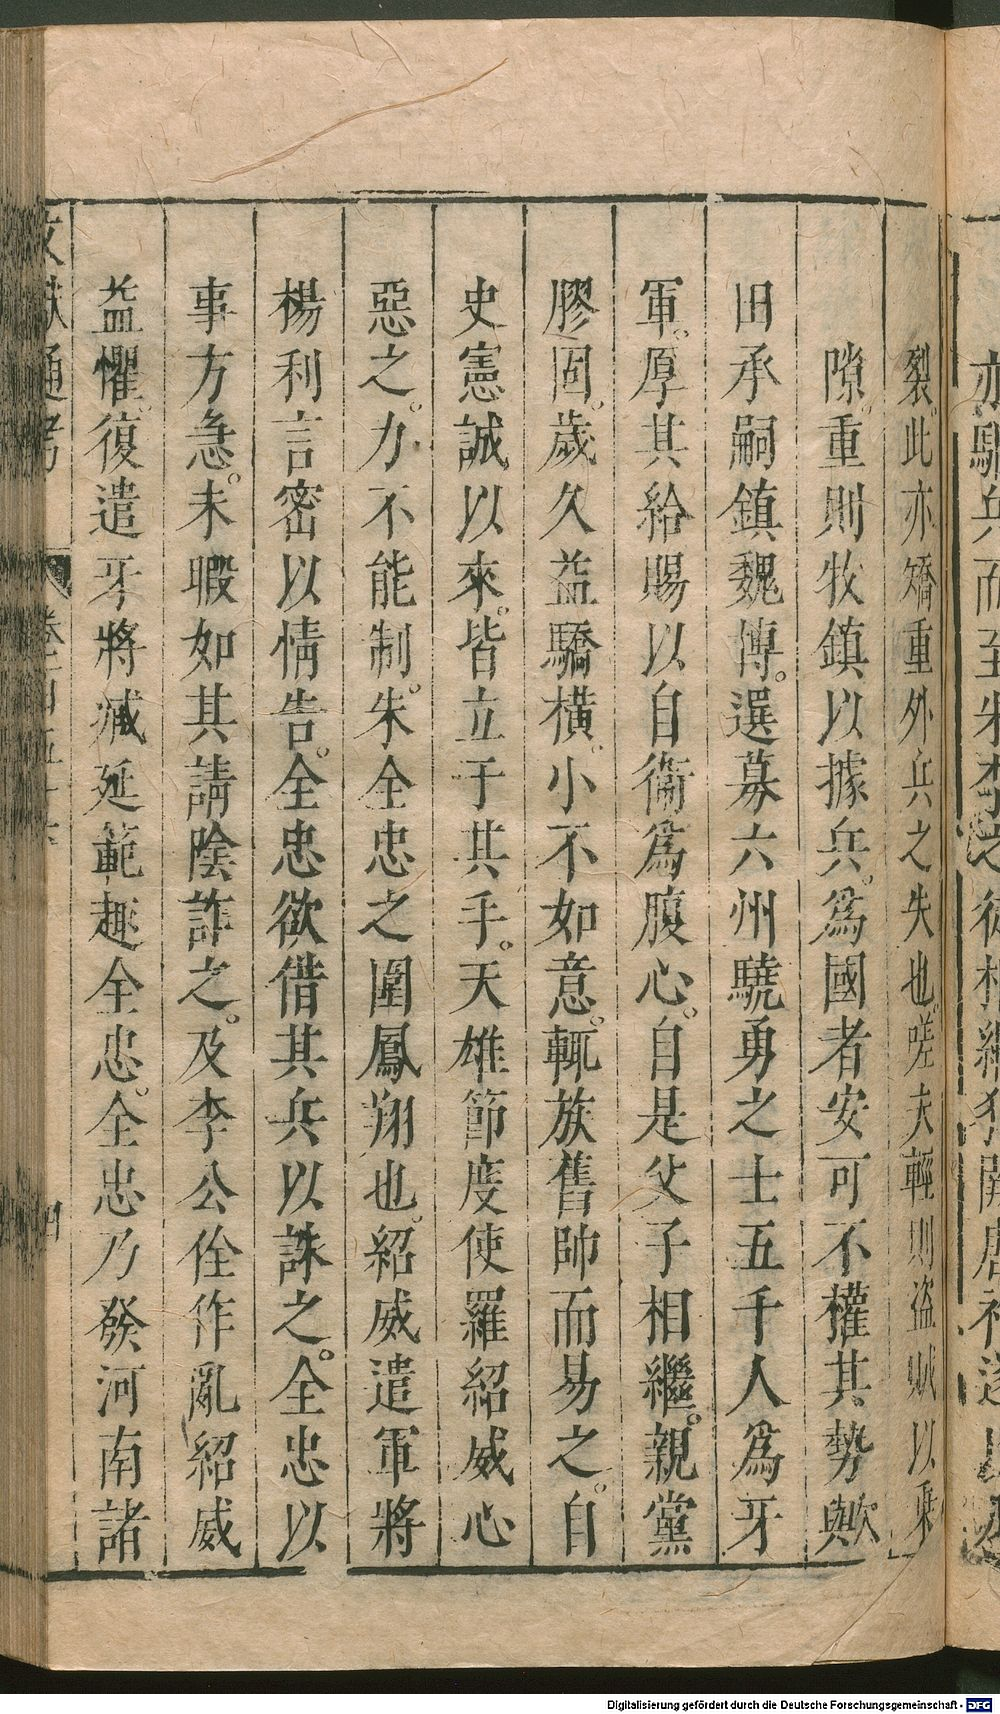 裂此亦矯重外兵之失也嗟夫輕則盗賊以乗
隙重則牧鎮以據兵爲國者安可不權其勢歟
田承嗣鎮魏博選募六州驍勇之士五千人爲牙
軍厚其給賜以自衞爲腹心自是父子相繼親黨
膠固歲久益驕橫小不如意輒族舊帥而易之自
史憲誠以來皆立于其手天雄節度使羅紹威心
惡之力不能制朱全忠之圍鳳翔也紹威遣軍將
楊利言密以情告全忠欲借其兵以誅之全忠以
事方急未暇如其請陰許之及李公佺作亂紹威
益懼復遣牙將臧延範趣全忠全忠乃發河南諸
文獻通考
四
Digitalisierung gefördert durch die Deutsche Forschungsgemeinschaft - DFG